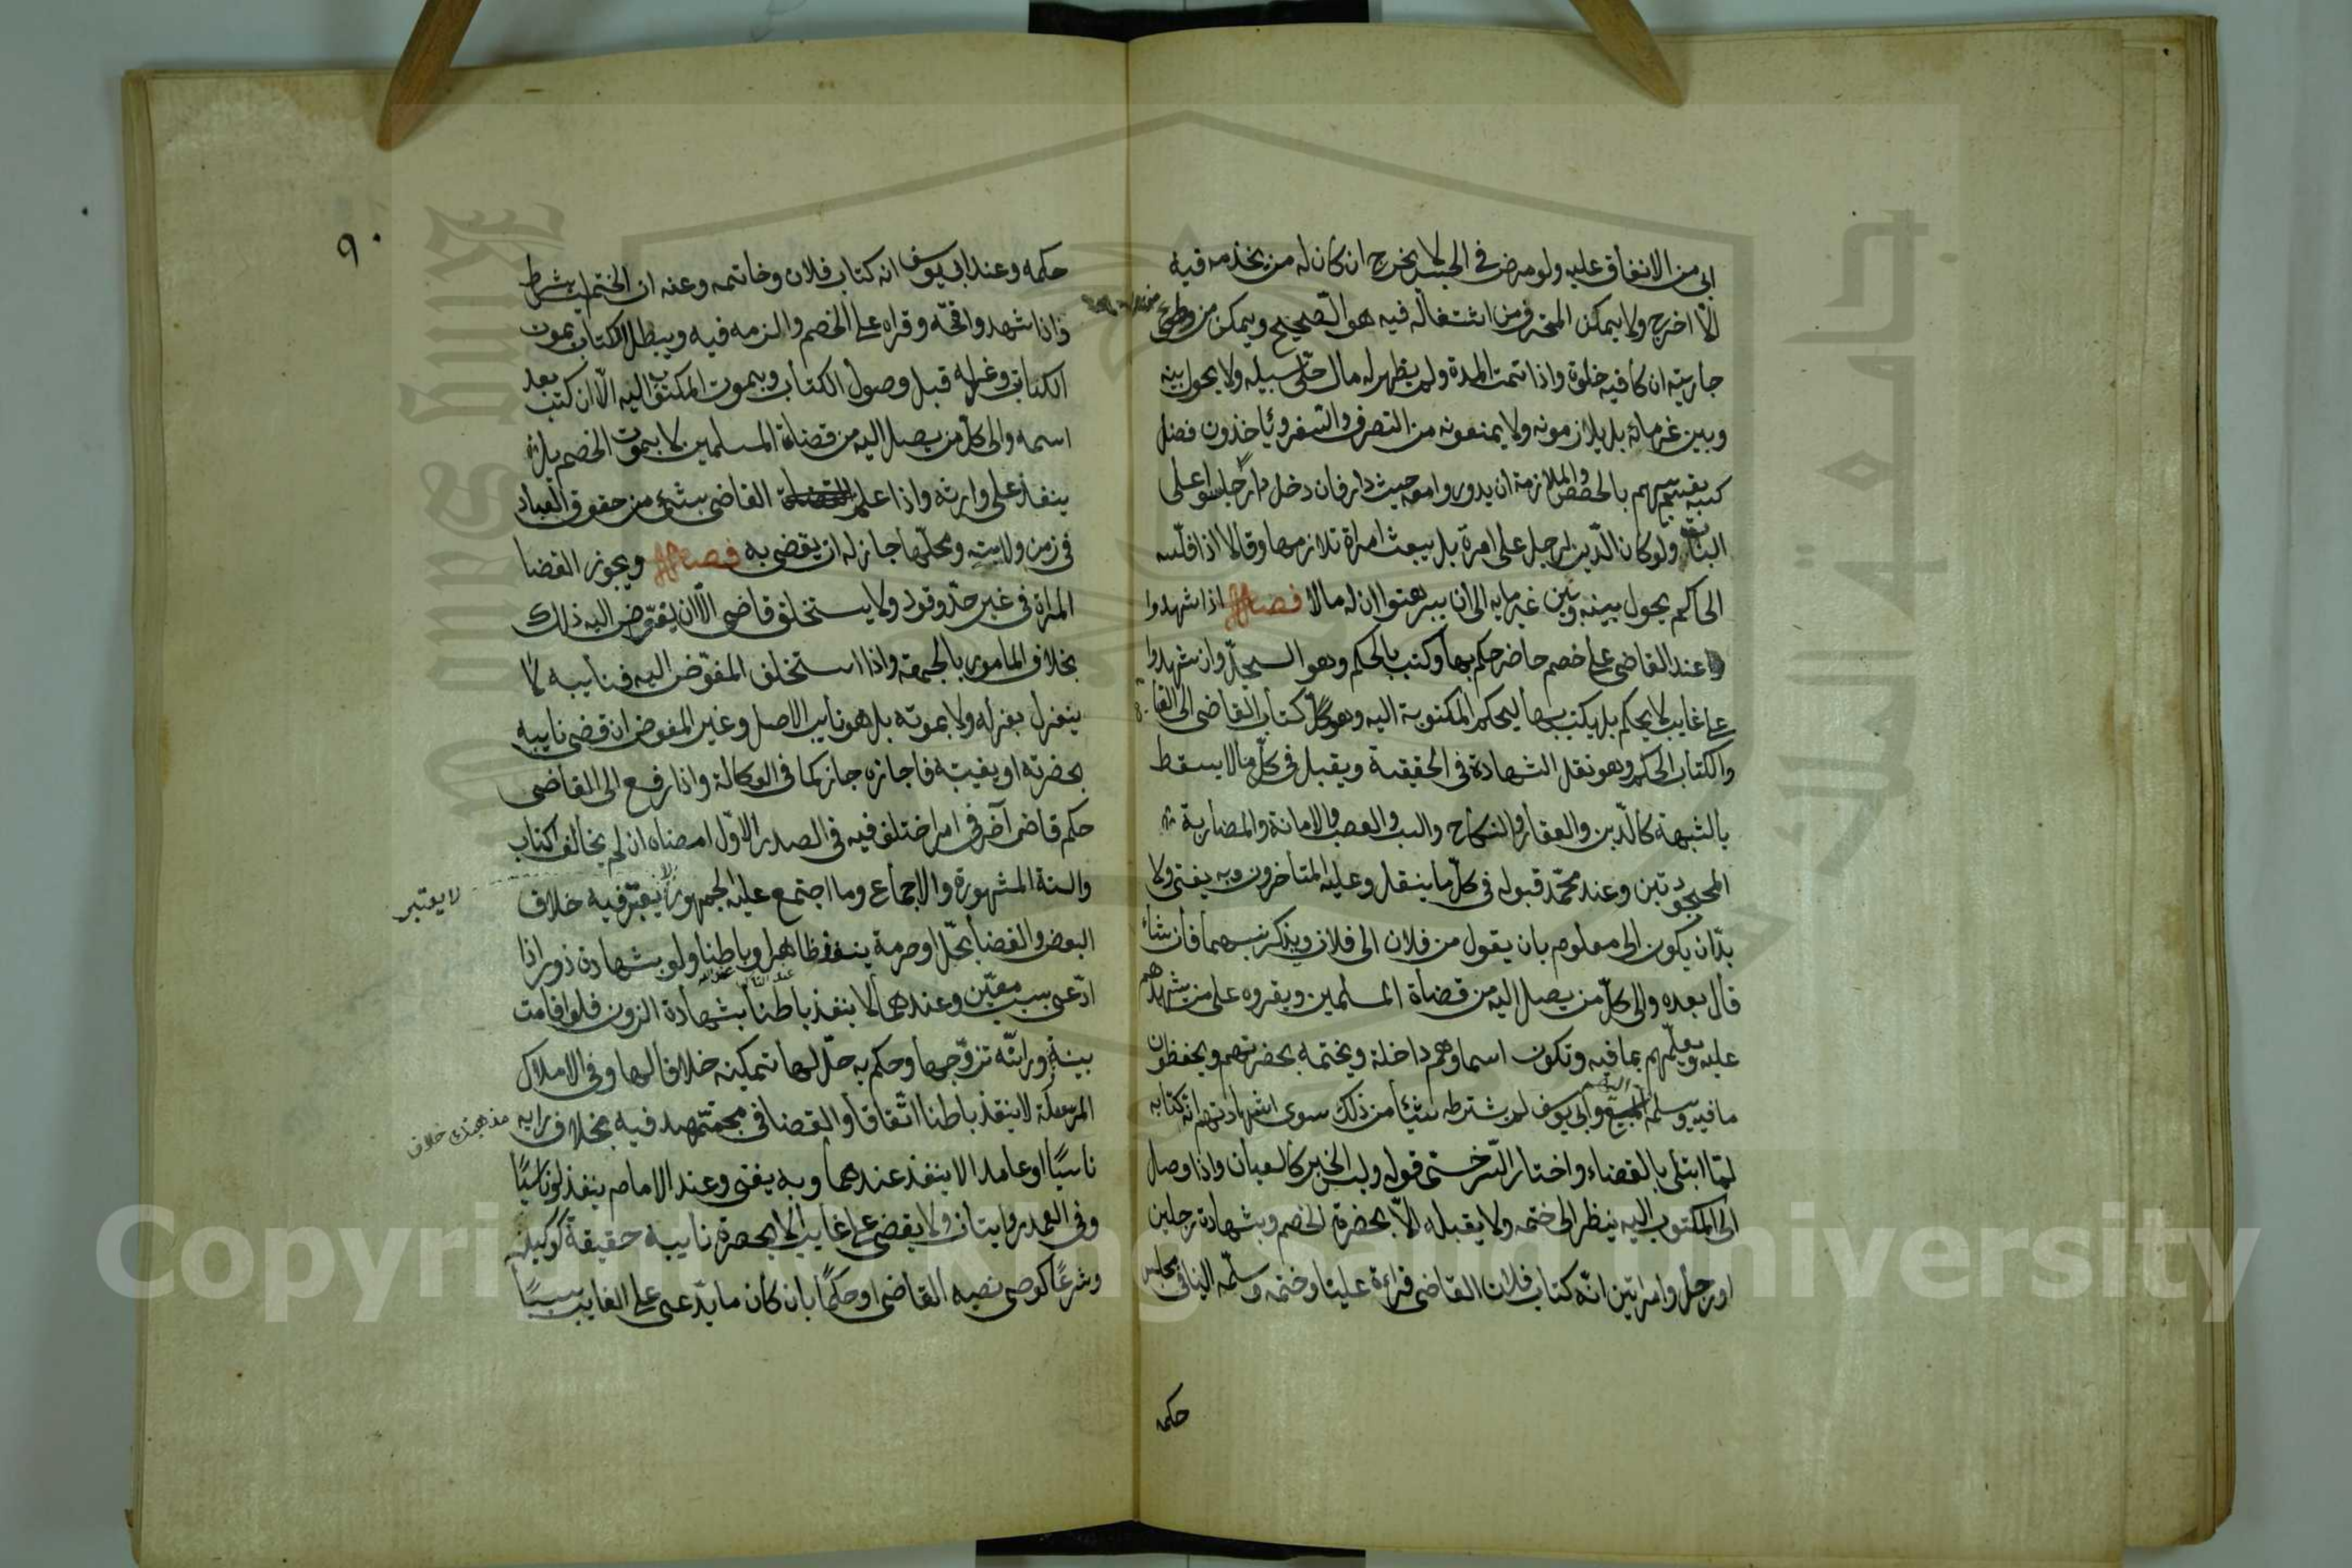 ابى من الانفاق عليه ولو مرض فى الحبس لا يخرج ان كان له من يخدمه فيه
الّا اخرج ولا يمكن المحترف من اشتغاله فيه هو الصّحيح ويمكن من وطئ
جاريته ان كا فيه خلوة واذا تمت المدة ولم يظهر له مال خلّى سبيله ولا يحول بينه
وبين غرمائه بل يلازمونه ولا يمنعونه من التصرف والسفر وياخذون فضل
كسبه يقسم بينهم بالحصص والملازمة ان يدوروا معه حيث دار فان دخل داره جلسوا على
الباب ولو كان الدّين لرجل على امرة بل يبعث امراة تلازمها وقالا اذا فلّسه
الحاكم يحول بينه وبين غرمايه الى ان يبرهنوا ان له مالا فصل اذا شهدوا
عند القاضى على خصم حاضر حكم بها وكتب بالحكم وهو السجلّ وان شهدوا
على غايب لا يحكم بل يكتب بها ليحكم المكتوبة اليه وهو كتاب القاضى الى القا
والكتاب الحكمى وهو نقل الشهادة فى الحقيقة ويقبل فى كلّ ما لا يسقط
بالشبهة كالدّين والعقار والنكاح والنسب والغصب والامانة والمضاربة
المجحودتين وعند محمّد قبوله فى كلّ ما ينقل وعليه المتاخرون وبه يفتى ولا
بدّ ان يكون الى معلوم بان يقول من فلان الى فلان ويذكر نسبهما فان شاء
قال بعده والى كلّ من يصل اليه من قضاة المسلمين ويقروه على من يشهدهم
عليه ويعلّمهم بما فيه وتكون اسماوهم داخلة ويختمه بحضرتهم ويحفظون
ما فيه ويسلمه اليهم وابى يوسف لم يشترط شيئا من ذلك سوى اشهادتهم انه كتابه
لمّا ابتلى بالقضاء واختار السّرخسى قوله وليس الخبر كالعيان واذا وصل
الى المكتوب اليه ينظر الى ختمه ولا يقبله الّا بحضرة الخصم وبشهادة رجلين
او رجل وامراتين انّه كتاب فلان القاضى قراءة علينا وختمه وسلّمه الينا فى مجلس
حكمه
٩٠
حكمه وعند ابى يوسف انه كتاب فلان وخاتمه وعنه ان الختم ليس بشرط
فاذا شهدوا فتحه وقراه على الخصم والزمه فيه ويبطل الكتاب بموت
الكتاب وعزله قبل وصول الكتاب وبموت المكتوب اليه الّا ان كتب بعد
اسمه والى كلّ من يصل اليه من قضاة المسلمين لا بموت الخصم بل
ينفذ على وارثه واذا علم القاضى بشئ من حقوق العباد
فى زمن ولايته ومحلّها جاز له ان يقضى به فصل ويجوز القضا
المراة فى غير حدّ وقود ولا يستخلف قاضى الّا ان يفوّض اليه ذلك
بخلاف المامور بالجمعة واذا استخلف المفوّض اليه فنايبه لا
ينعزل بعزله ولا بموته بل هو نايب الاصل وغير المفوض ان قضى نايبه
بحضرته او بغيبته فاجازه جاز كما فى الوكالة واذا رفع الى القاضى
حكم قاضى آخر فى امر اختلف فيه فى الصدر الاوّل امضاه ان لم يخالف الكتاب
والسنة المشهورة والاجماع وما اجتمع عليه الجمهور لا يعتبر فيه خلاف
لا يعتبر
البعض والقضا بحلّ او حرمة ينفذ ظاهرا وباطنا ولو بشهادة زور اذا
ادّعى بسبب معيّن وعندهما لا ينفذ باطنا بشهادة الزور فلو اقامت
بينة زورا انّه تزوّجها وحكم به حلّ لها تمكينه خلافا لهما وفى الاملاك
المرسلة لا ينفذ باطنا اتّفاقا والقضا فى مجتهد فيه بخلاف رايه
ناسيًا او عامدا لا ينفذ عندهما وبه يفتى وعند الامام ينفذ لو ناسيًا
وفى العمد روايتان ولا يقضى على غايب الّا بحضرة نايبه حقيقة كوكيله
وشرعًا كوصى نصبه القاضى او حكمًا بان كان ما يدّعى على الغايب سببًا